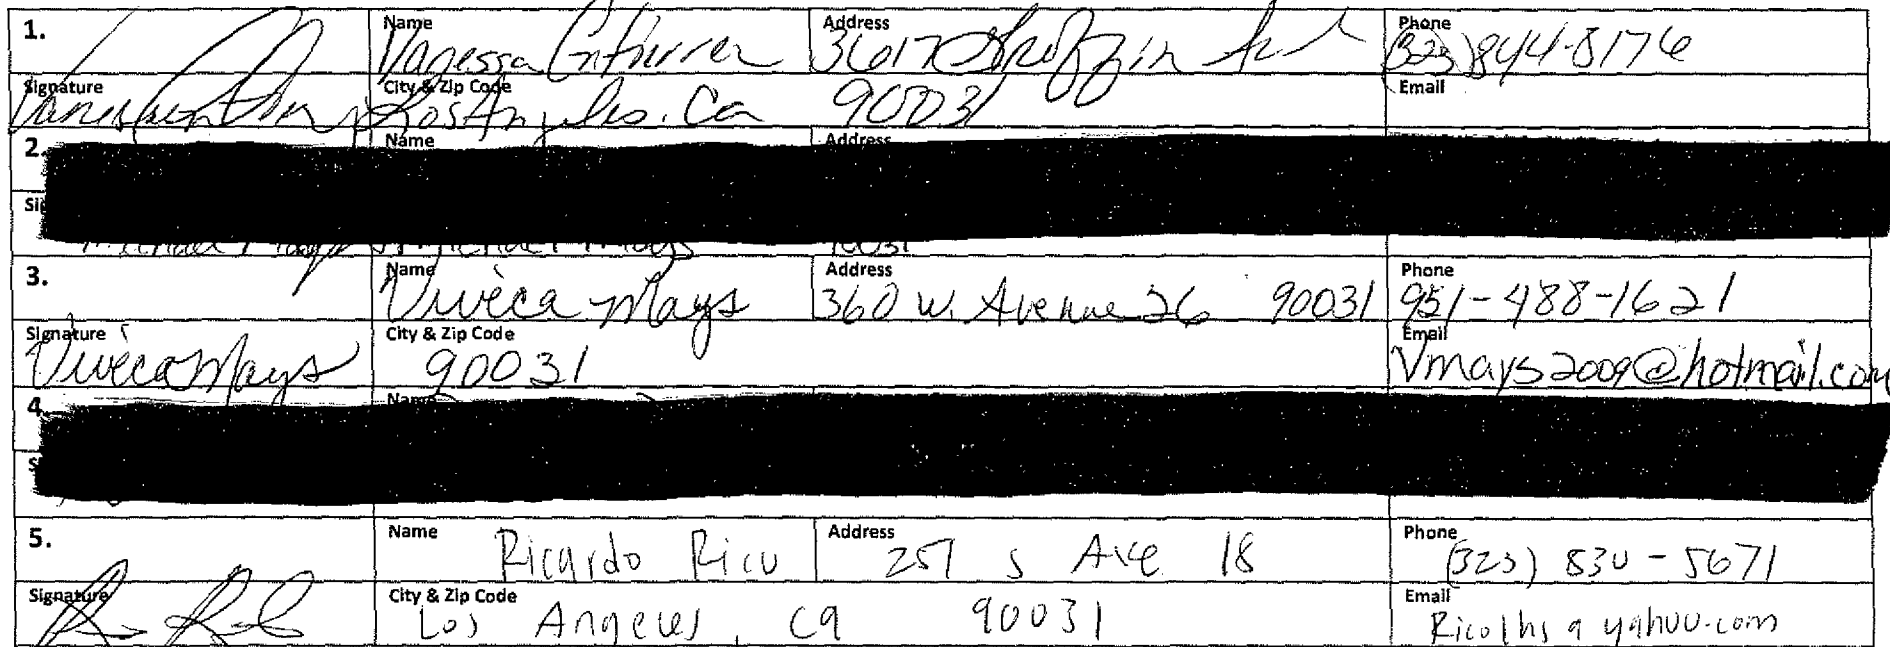 1. Name Vanessa Gutierrez Address 3617 Griffin Ave Phone (323) 844-8176
Signature City & Zip Code Los Angeles. Ca 90031 Email
2. Name Address
Michael Mays 90031
3. Name Viveca Mays Address 360 W. Avenue 26 90031 Phone 951-488-1621
Signature Viveca Mays City & Zip Code 90031 Email Vmays2009@hotmail.com
4. Name
5. Name Ricardo Rico Address 257 S Ave 18 Phone (323) 830-5671
Signature City & Zip Code Los Angeles, Ca 90031 Email